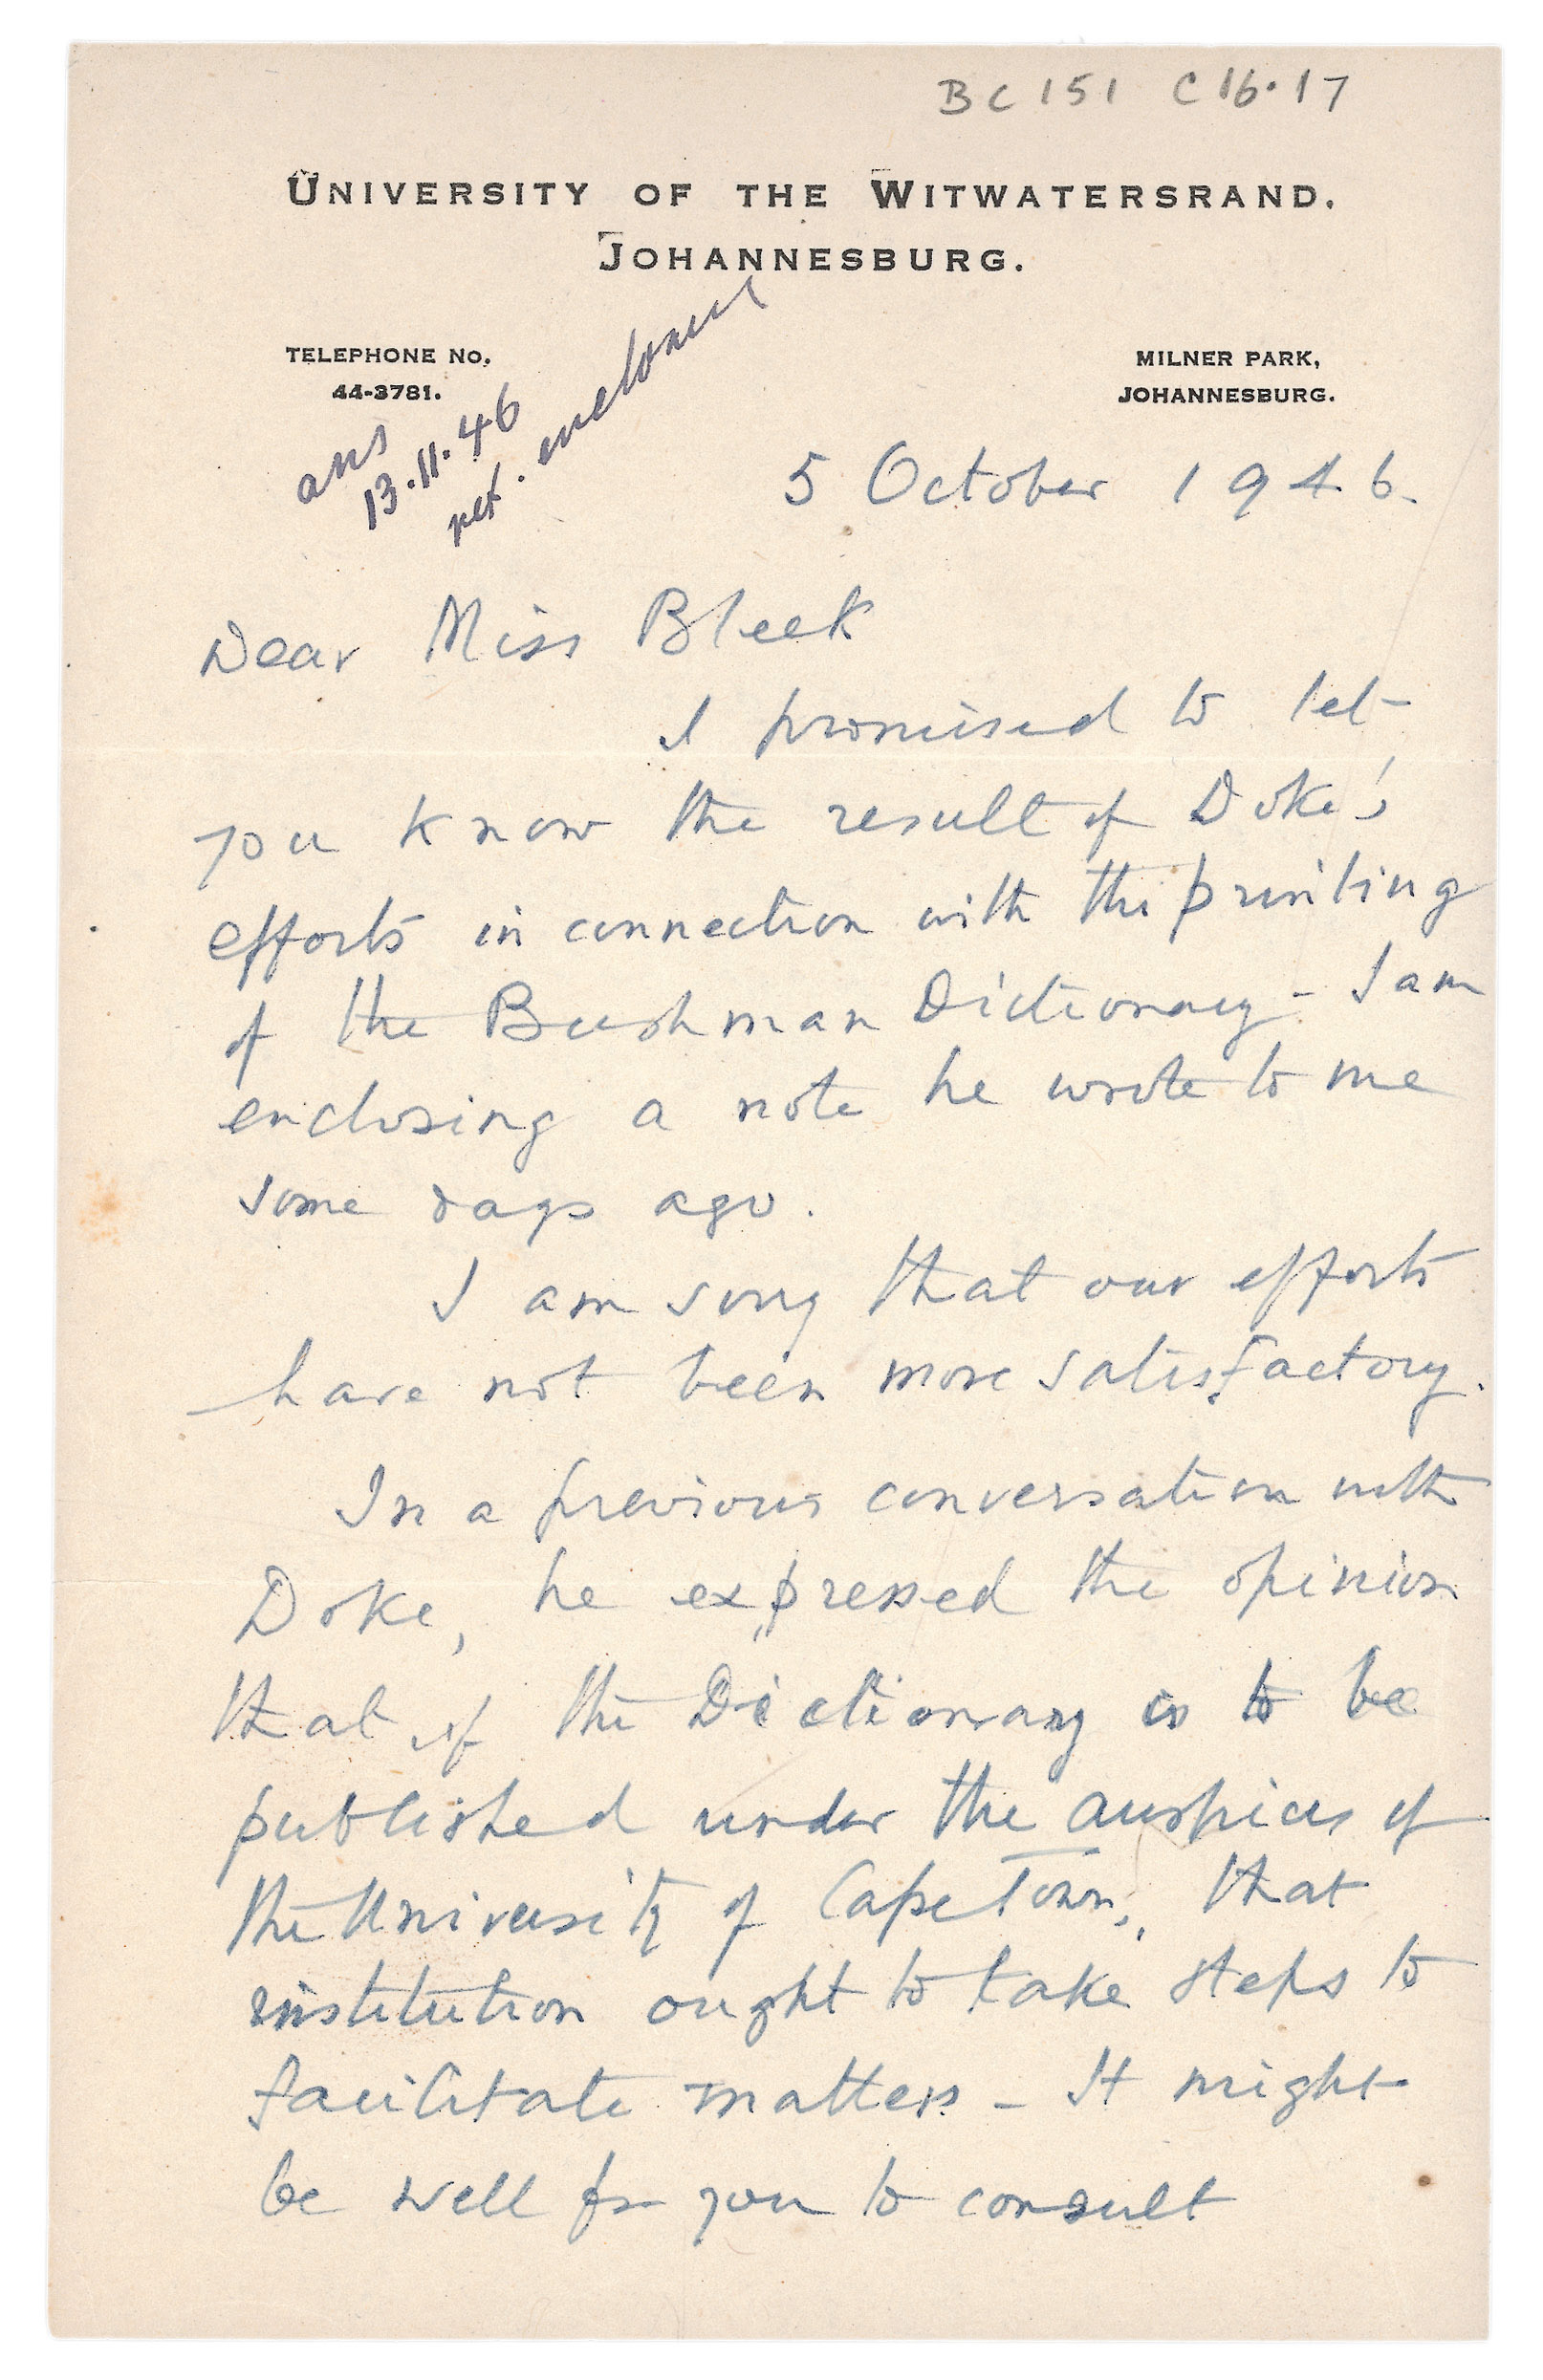 BC 151 C16.17
UNIVERSITY OF THE WITWATERSRAND.
JOHANNESBURG.
TELEPHONE NO.
44-3781.
MILNER PARK,
JOHANNESBURG.
ans
13.11.46
ret.
5 October 1946.
Dear Miss Bleek
I promised to let
you know the result of Doke's
efforts in connection with the printing
of the Bushman Dictionary - I am
enclosing a note he wrote to me
some days ago.
I am sorry that our efforts
have not been more satisfactory.
In a previous conversation with
Doke, he expressed the opinion
that if the Dictionary is to be
published under the auspices of
the University of Cape Town, that
institution ought to take steps to
facilitate matters - It might
be well for you to consult